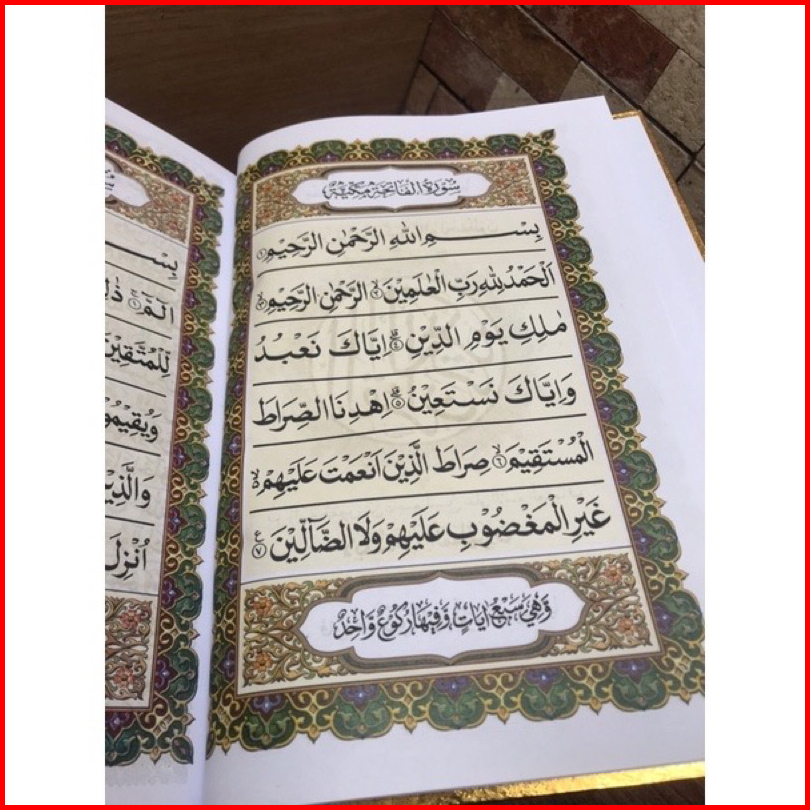 سورة الفاتحة مكية
بِسْــــــمِ اللهِ الرَّحْمٰنِ الرَّحِيْمِ ۝١
اَلْحَمْدُ لِلهِ رَبِّ الْعٰلَمِيْنَ ۝٢ الرَّحْمٰنِ الرَّحِيْمِ ۝٣
مٰلِكِ يَوْمِ الدِّيْنِ ۝٤ اِيَّاكَ نَعْبُدُ
وَاِيَّاكَ نَسْتَعِيْنُ ۝٥ اِهْدِنَا الصِّرَاطَ
الْمُسْتَقِيْمَ ۝٦ صِرَاطَ الَّذِيْنَ اَنْعَمْتَ عَلَيْهِمْ
غَيْرِ الْمَغْضُوْبِ عَلَيْهِمْ وَلَا الضَّآلِّيْنَ ۝٧
وَهِيَ سَبْعُ اٰيَاتٍ وَفِيْهَا رُكُوْعٌ وَاحِدٌ
بِسْــــ
الٓمّٓ ۝١ ذٰلِ
لِّلْمُتَّقِيْنَ
وَيُقِيْمُو
وَالَّذِيْ
اُنْزِلَ